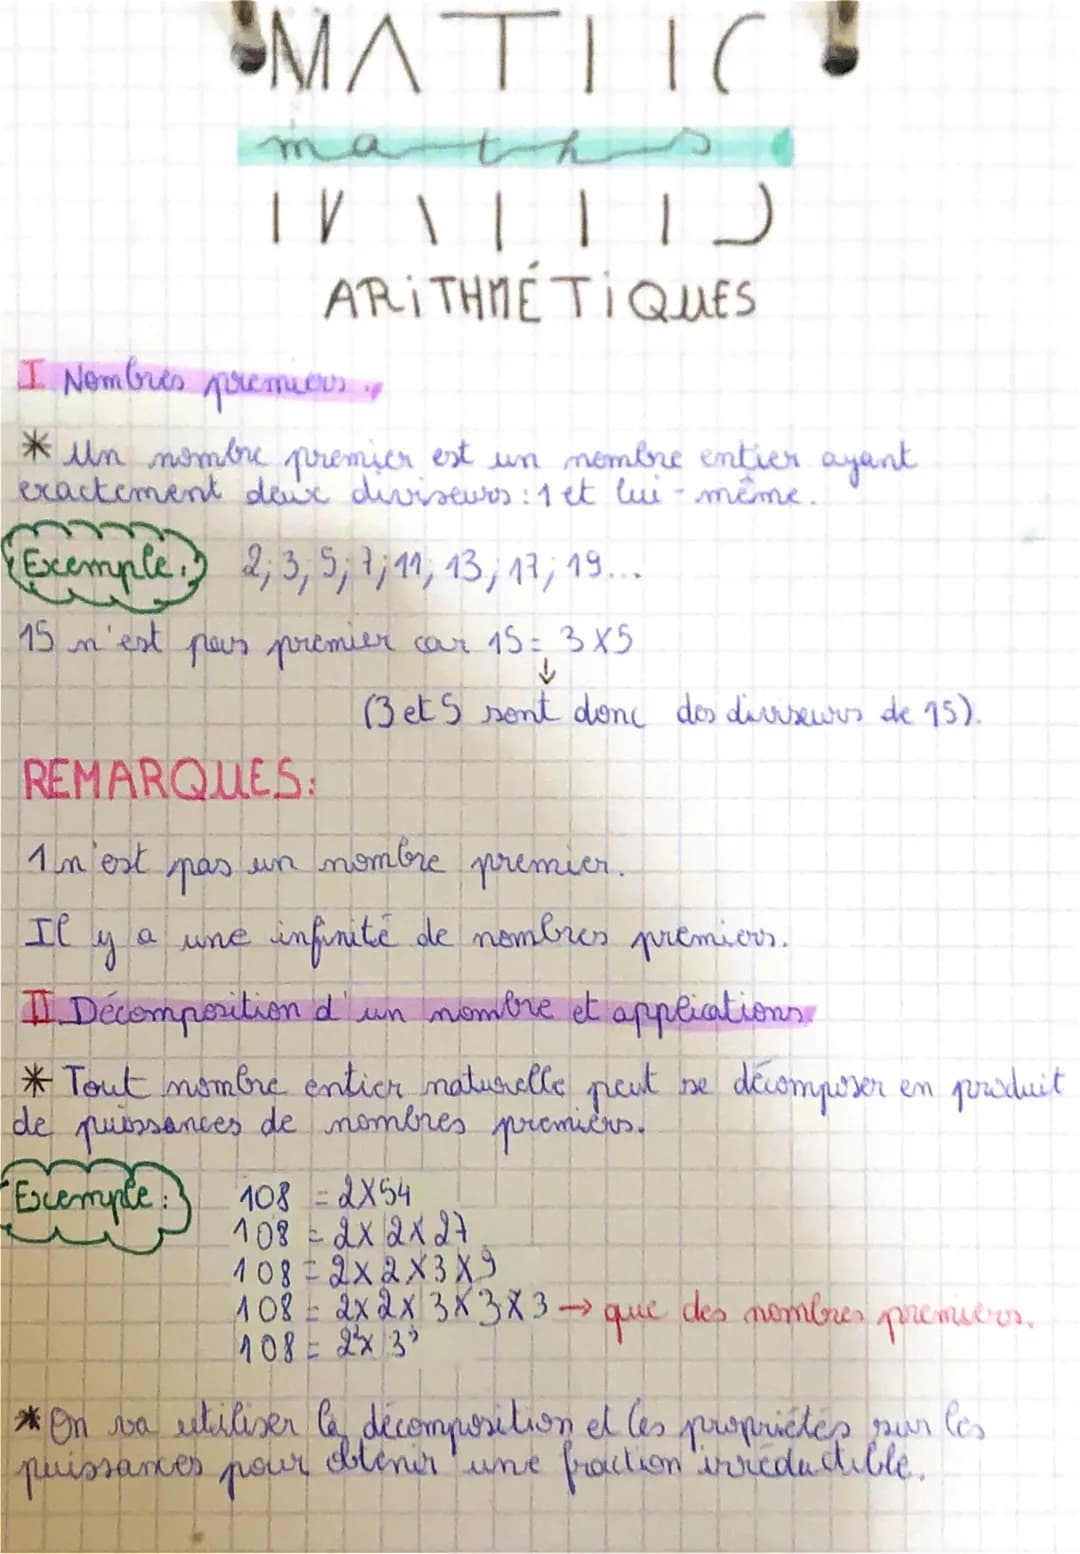 maths
ARITHMÉTIQUES
I Nombres premiers.
* Un nombre premier est un nombre entier ayant
exactement deux diviseurs : 1 et lui-même.
Exemple : 2; 3; 5; 7; 11; 13; 17; 19...
15 n'est pas premier car 15 = 3 x 5
↓
(3 et 5 sont donc des diviseurs de 15).
REMARQUES:
1 n'est pas un nombre premier.
Il y a une infinité de nombres premiers.
II Décomposition d'un nombre et applications
* Tout nombre entier naturelle peut se décomposer en produit
de puissances de nombres premiers.
Exemple : 108 = 2x54
108 = 2x2x27
108 = 2x2x3x9
108 = 2x2x3x3x3 → que des nombres premiers.
108 = 2²x3³
* On va utiliser la décomposition et les propriétés sur les
puissances pour obtenir une fraction irréductible.